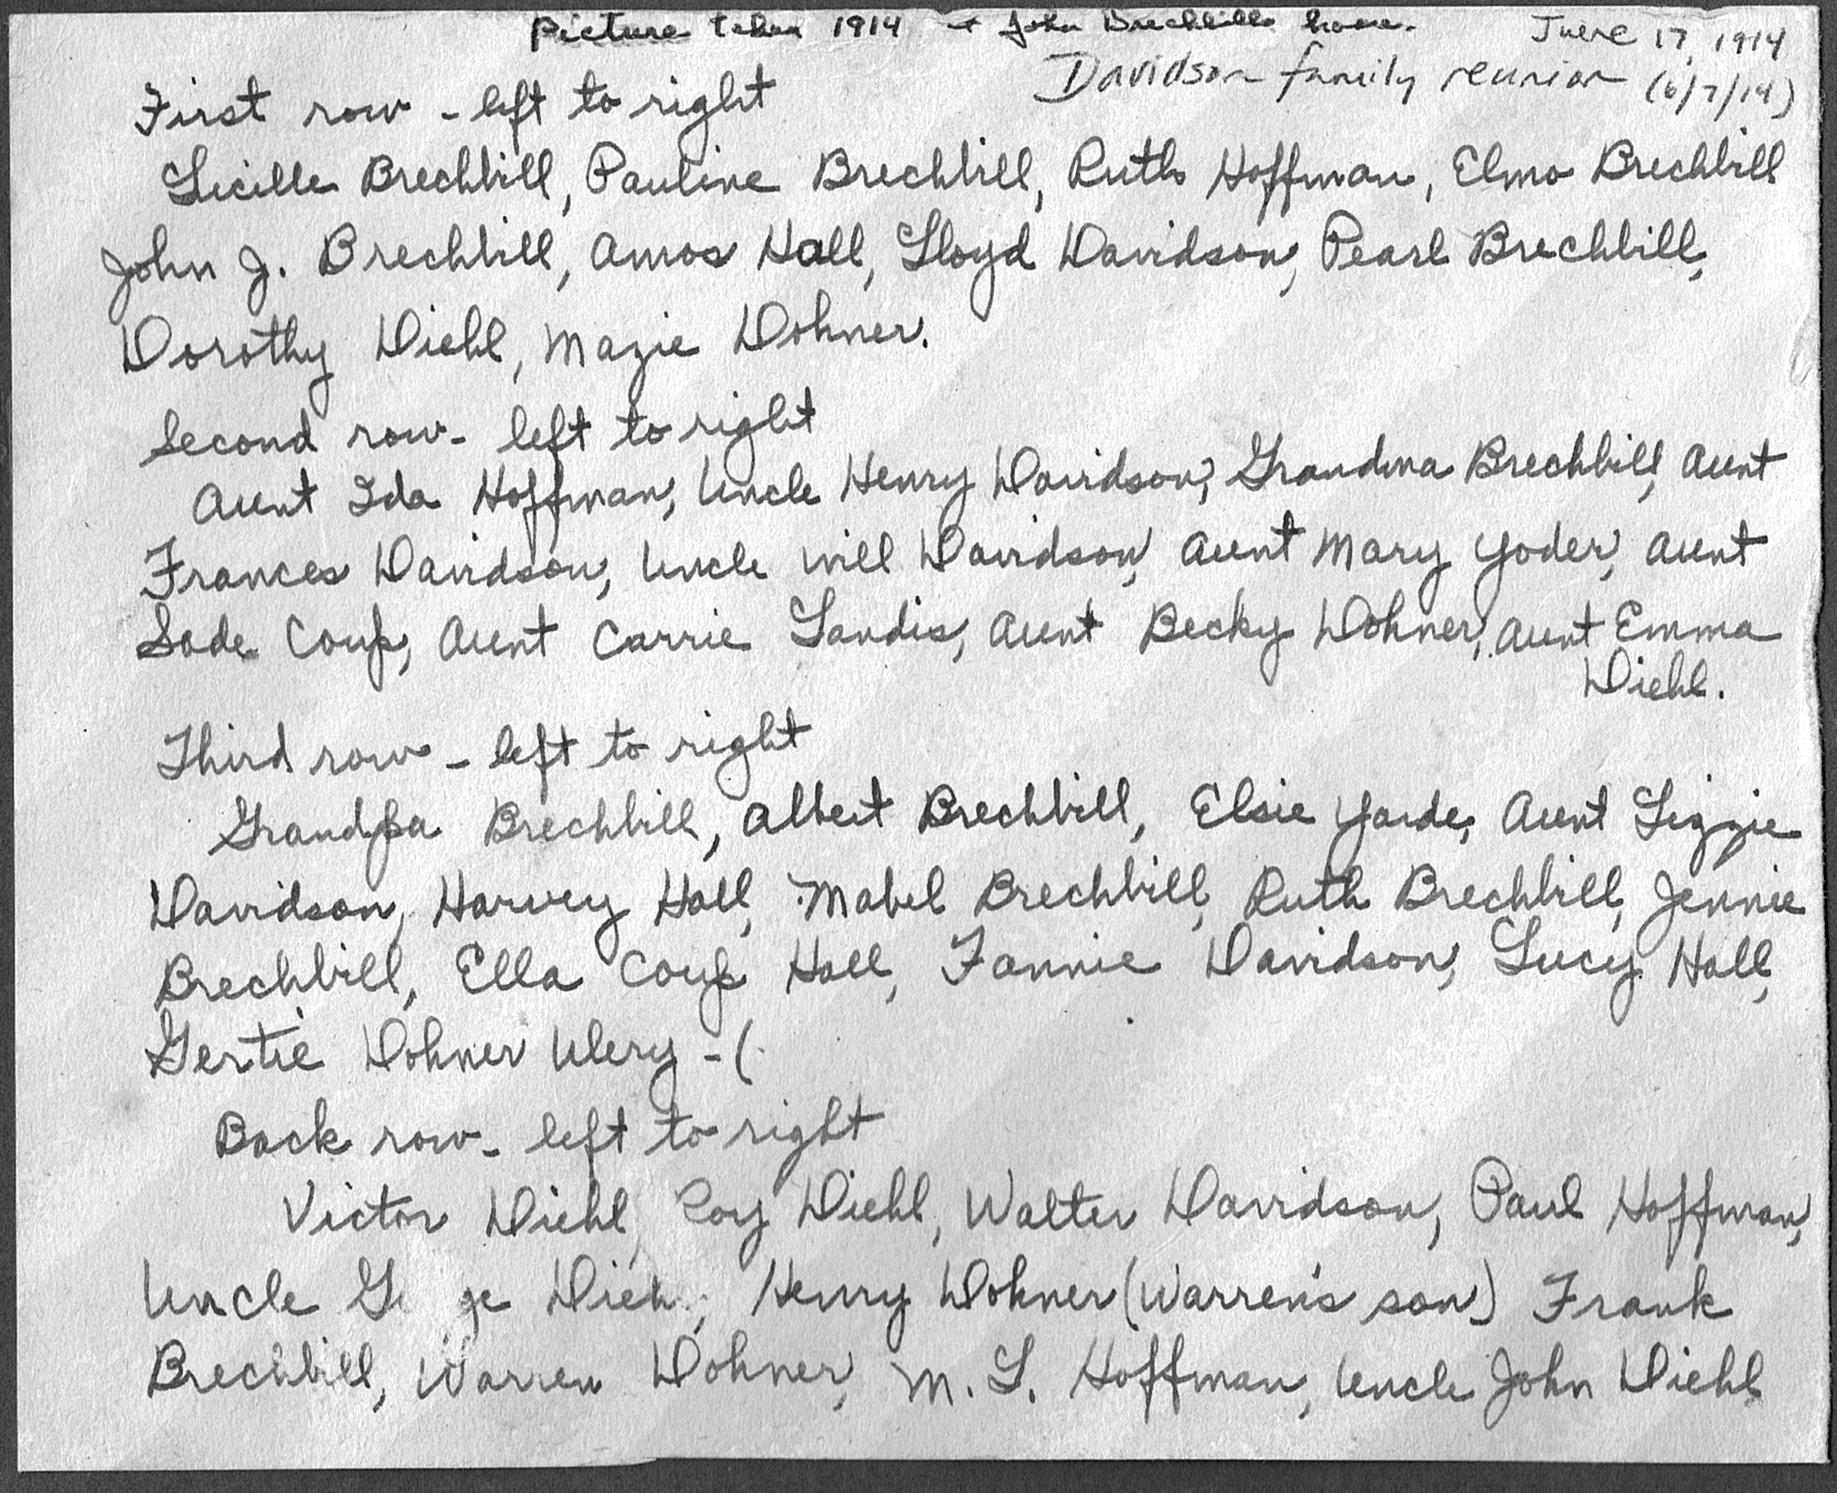 Picture taken 1914 John Brechbills home.
June 17, 1914
Davidson family reunion (6/7/14)
First row - left to right
Lucille Brechbill, Pauline Brechbill, Ruth Hoffman, Elmo Brechbill
John J. Brechbill, Amos Hall, Lloyd Davidson, Pearl Brechbill,
Dorothy Diehl, Mazie Dohner.
Second row - left to right
Aunt Ida Hoffman, Uncle Henry Davidson, Grandma Brechbill, Aunt
Frances Davidson, Uncle Will Davidson, Aunt Mary Yoder, Aunt
Sade Coup, Aunt Carrie Landis, Aunt Becky Dohner, Aunt Emma
Diehl.
Third row - left to right
Grandpa Brechbill, Albert Brechbill, Elsie Yorde, Aunt Lizzie
Davidson, Harvey Hall, Mabel Brechbill, Ruth Brechbill, Jennie
Brechbill, Ella Coup Hall, Fannie Davidson, Lucy Hall,
Gertie Dohner Ulery - (
Back row - left to right
Victor Diehl, Roy Diehl, Walter Davidson, Paul Hoffman,
Uncle G ge Dieh, Henry Dohner (Warren's son) Frank
Brechbill, Warren Dohner, M. L. Hoffman, Uncle John Diehl